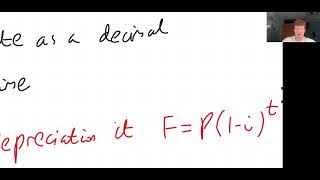 te as a decimal
ime
epreciation it F=P(1-i)^t